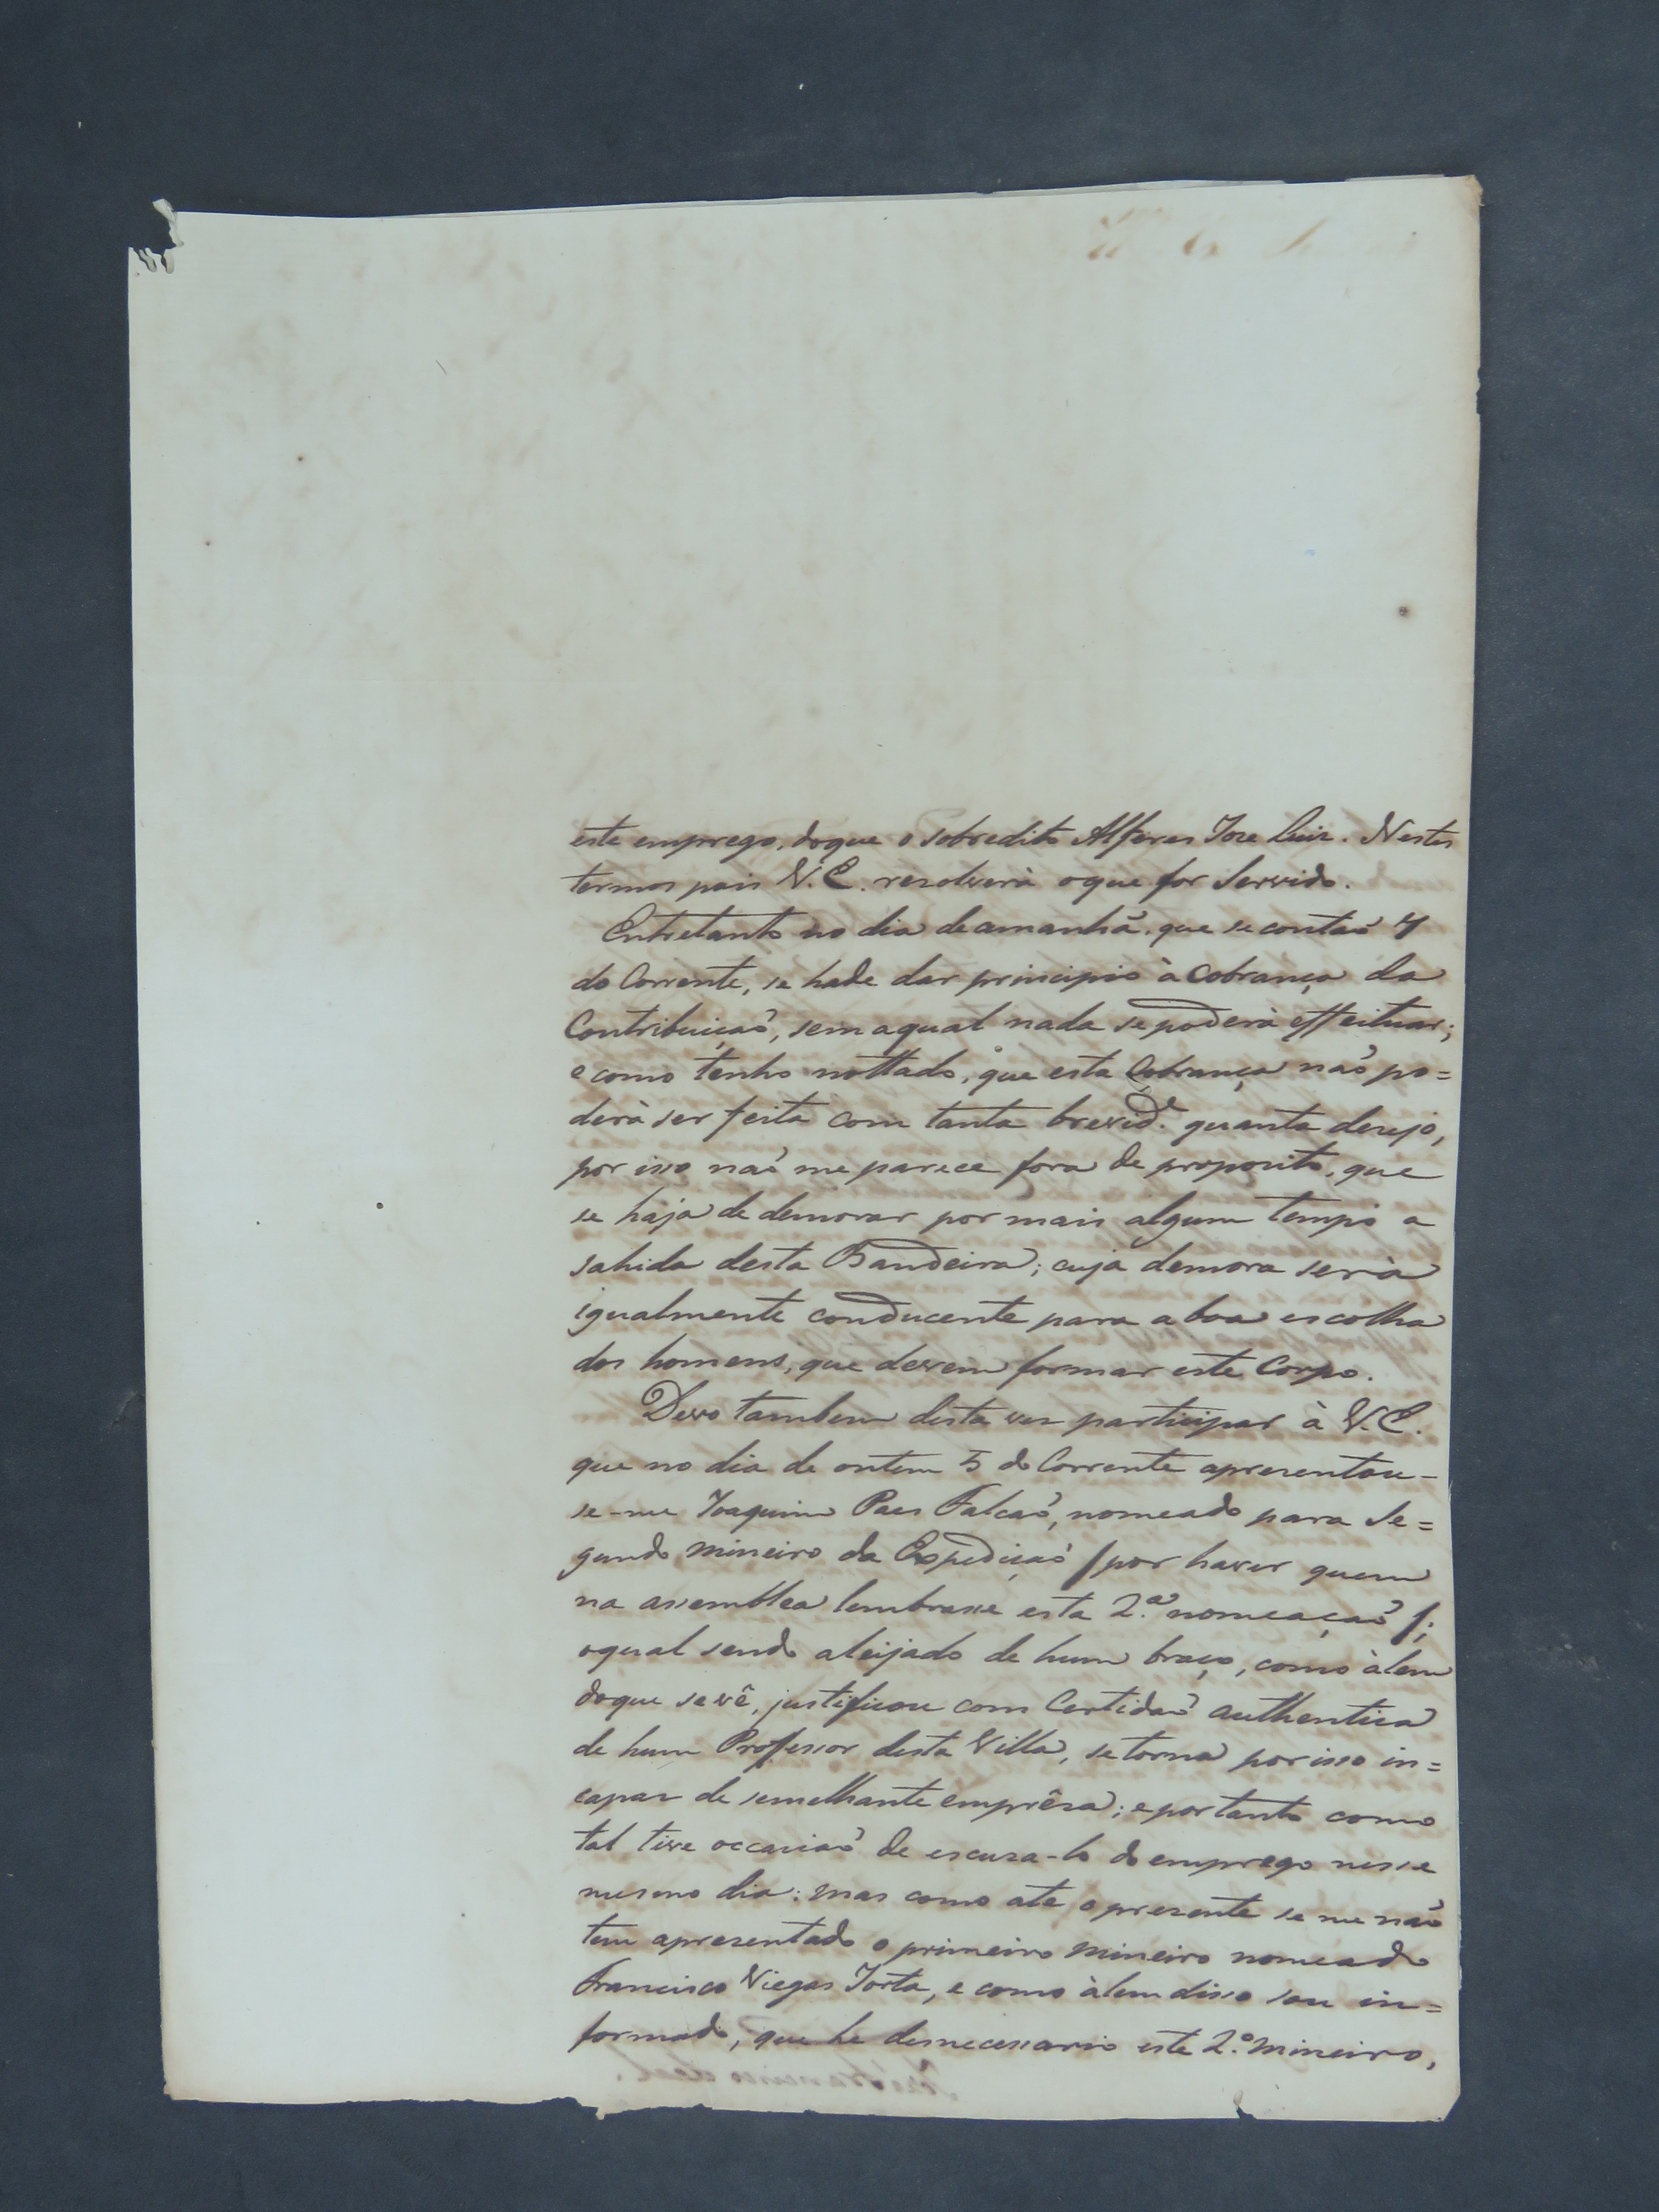 este emprego, doque o sobredito Alferes Joze Luiz. Nestes
termos pois V.E. rezolverà oque for Servido.
Entretanto no dia deamanhã, que se contaõ 7
do Corrente, se hade dar principio à Cobrança da
Contribuiçaõ, sem aqual nada se poderà effeituar;
e como tenho nottado, que esta Cobrança naõ po=
derà ser feita com tanta brevid.e quanta dezejo,
por isso naõ me parece fora de proposito, que
se haja de demorar por mais algum tempo a
sahida desta Bandeira; cuja demora serà
igualmente conducente para a boa escolha
dos homens, que devem formar este Corpo.
Devo tambem desta vez participar à V.E.
que no dia de ontem 5 do Corrente aprezentou-
se-me Joaquim Paes Falcaõ, nomeado para Se=
gundo mineiro da Expediçaõ /por haver quem
na assemblea lembrasse esta 2.a nomeaçaõ/;
oqual sendo aleijado de hum braço, como àlem
doque se vê, justificou com Certidaõ authentica
de hum Professor desta Villa, se torna por isso in=
capaz de semelhante emprêza; e portanto como
tal tive occaziaõ de escuza-lo do emprego nesse
mesmo dia: mas como ate o prezente se me naõ
tem aprezentado o primeiro mineiro nomeado
Francisco Viegas Jorta, e como àlem disso sou in=
formado, que he desnecessario este 2.o mineiro,